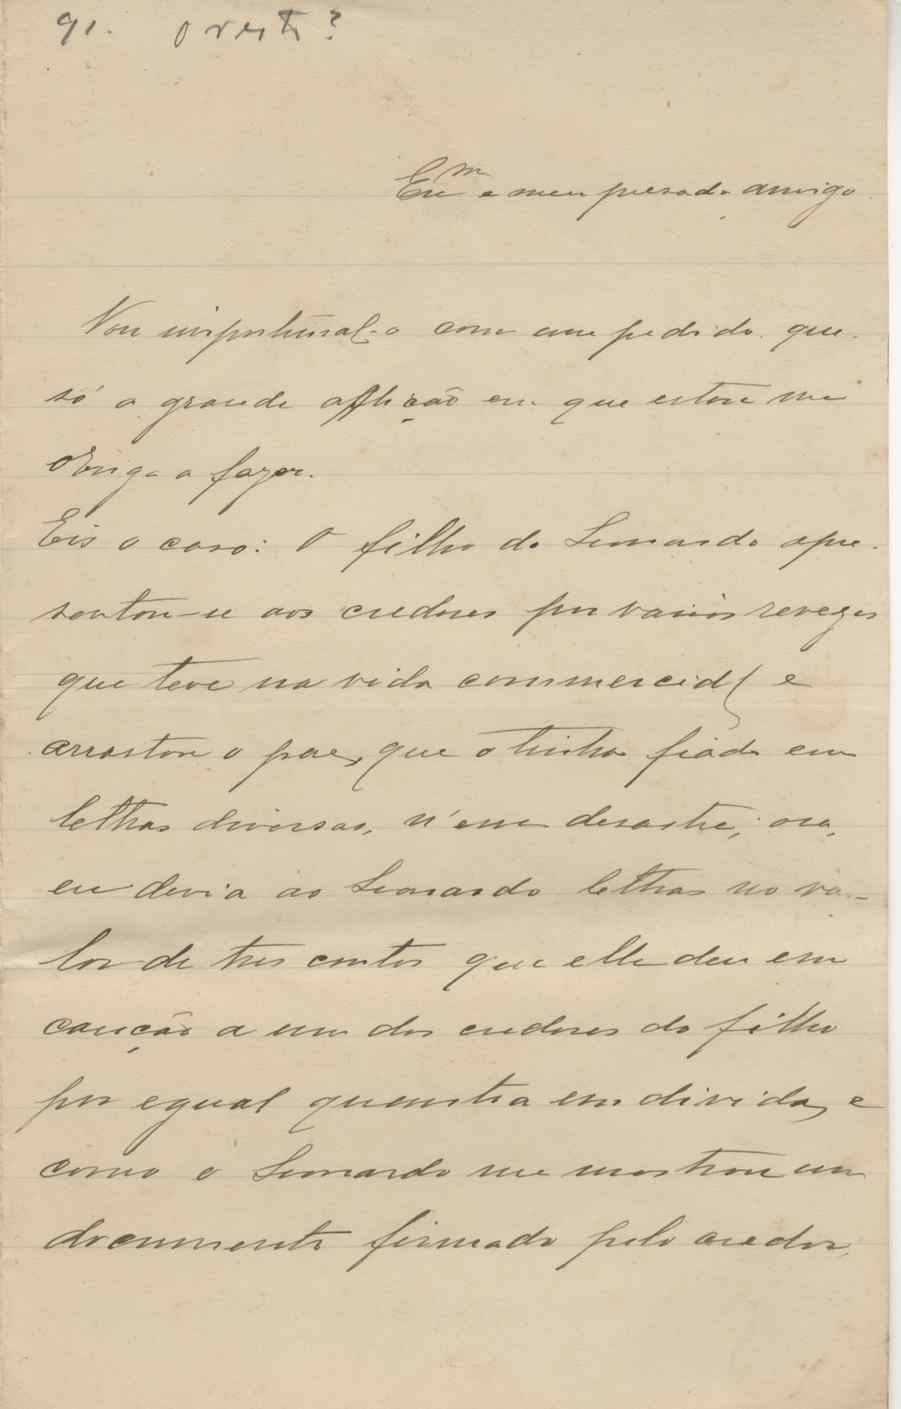 91. o resto?
Exmo e meu presado amigo
Vou importunal-o com um pedido que
só a grande afflicção em que estou me
obriga a fazer.
Eis o caso: O filho do Leonardo apre-
sentou-se aos credores por varios revezes
que teve na vida commercial e
arrastou o pae, que o tinha fiado em
lethras diversas, n'esse desastre; ora,
eu devia ao Leonardo lethras no va-
lor de tres contos que elle deu em
caução a um dos credores do filho
por egual quantia em divida, e
como o Leonardo me mostrou um
documento firmado pelo credor,